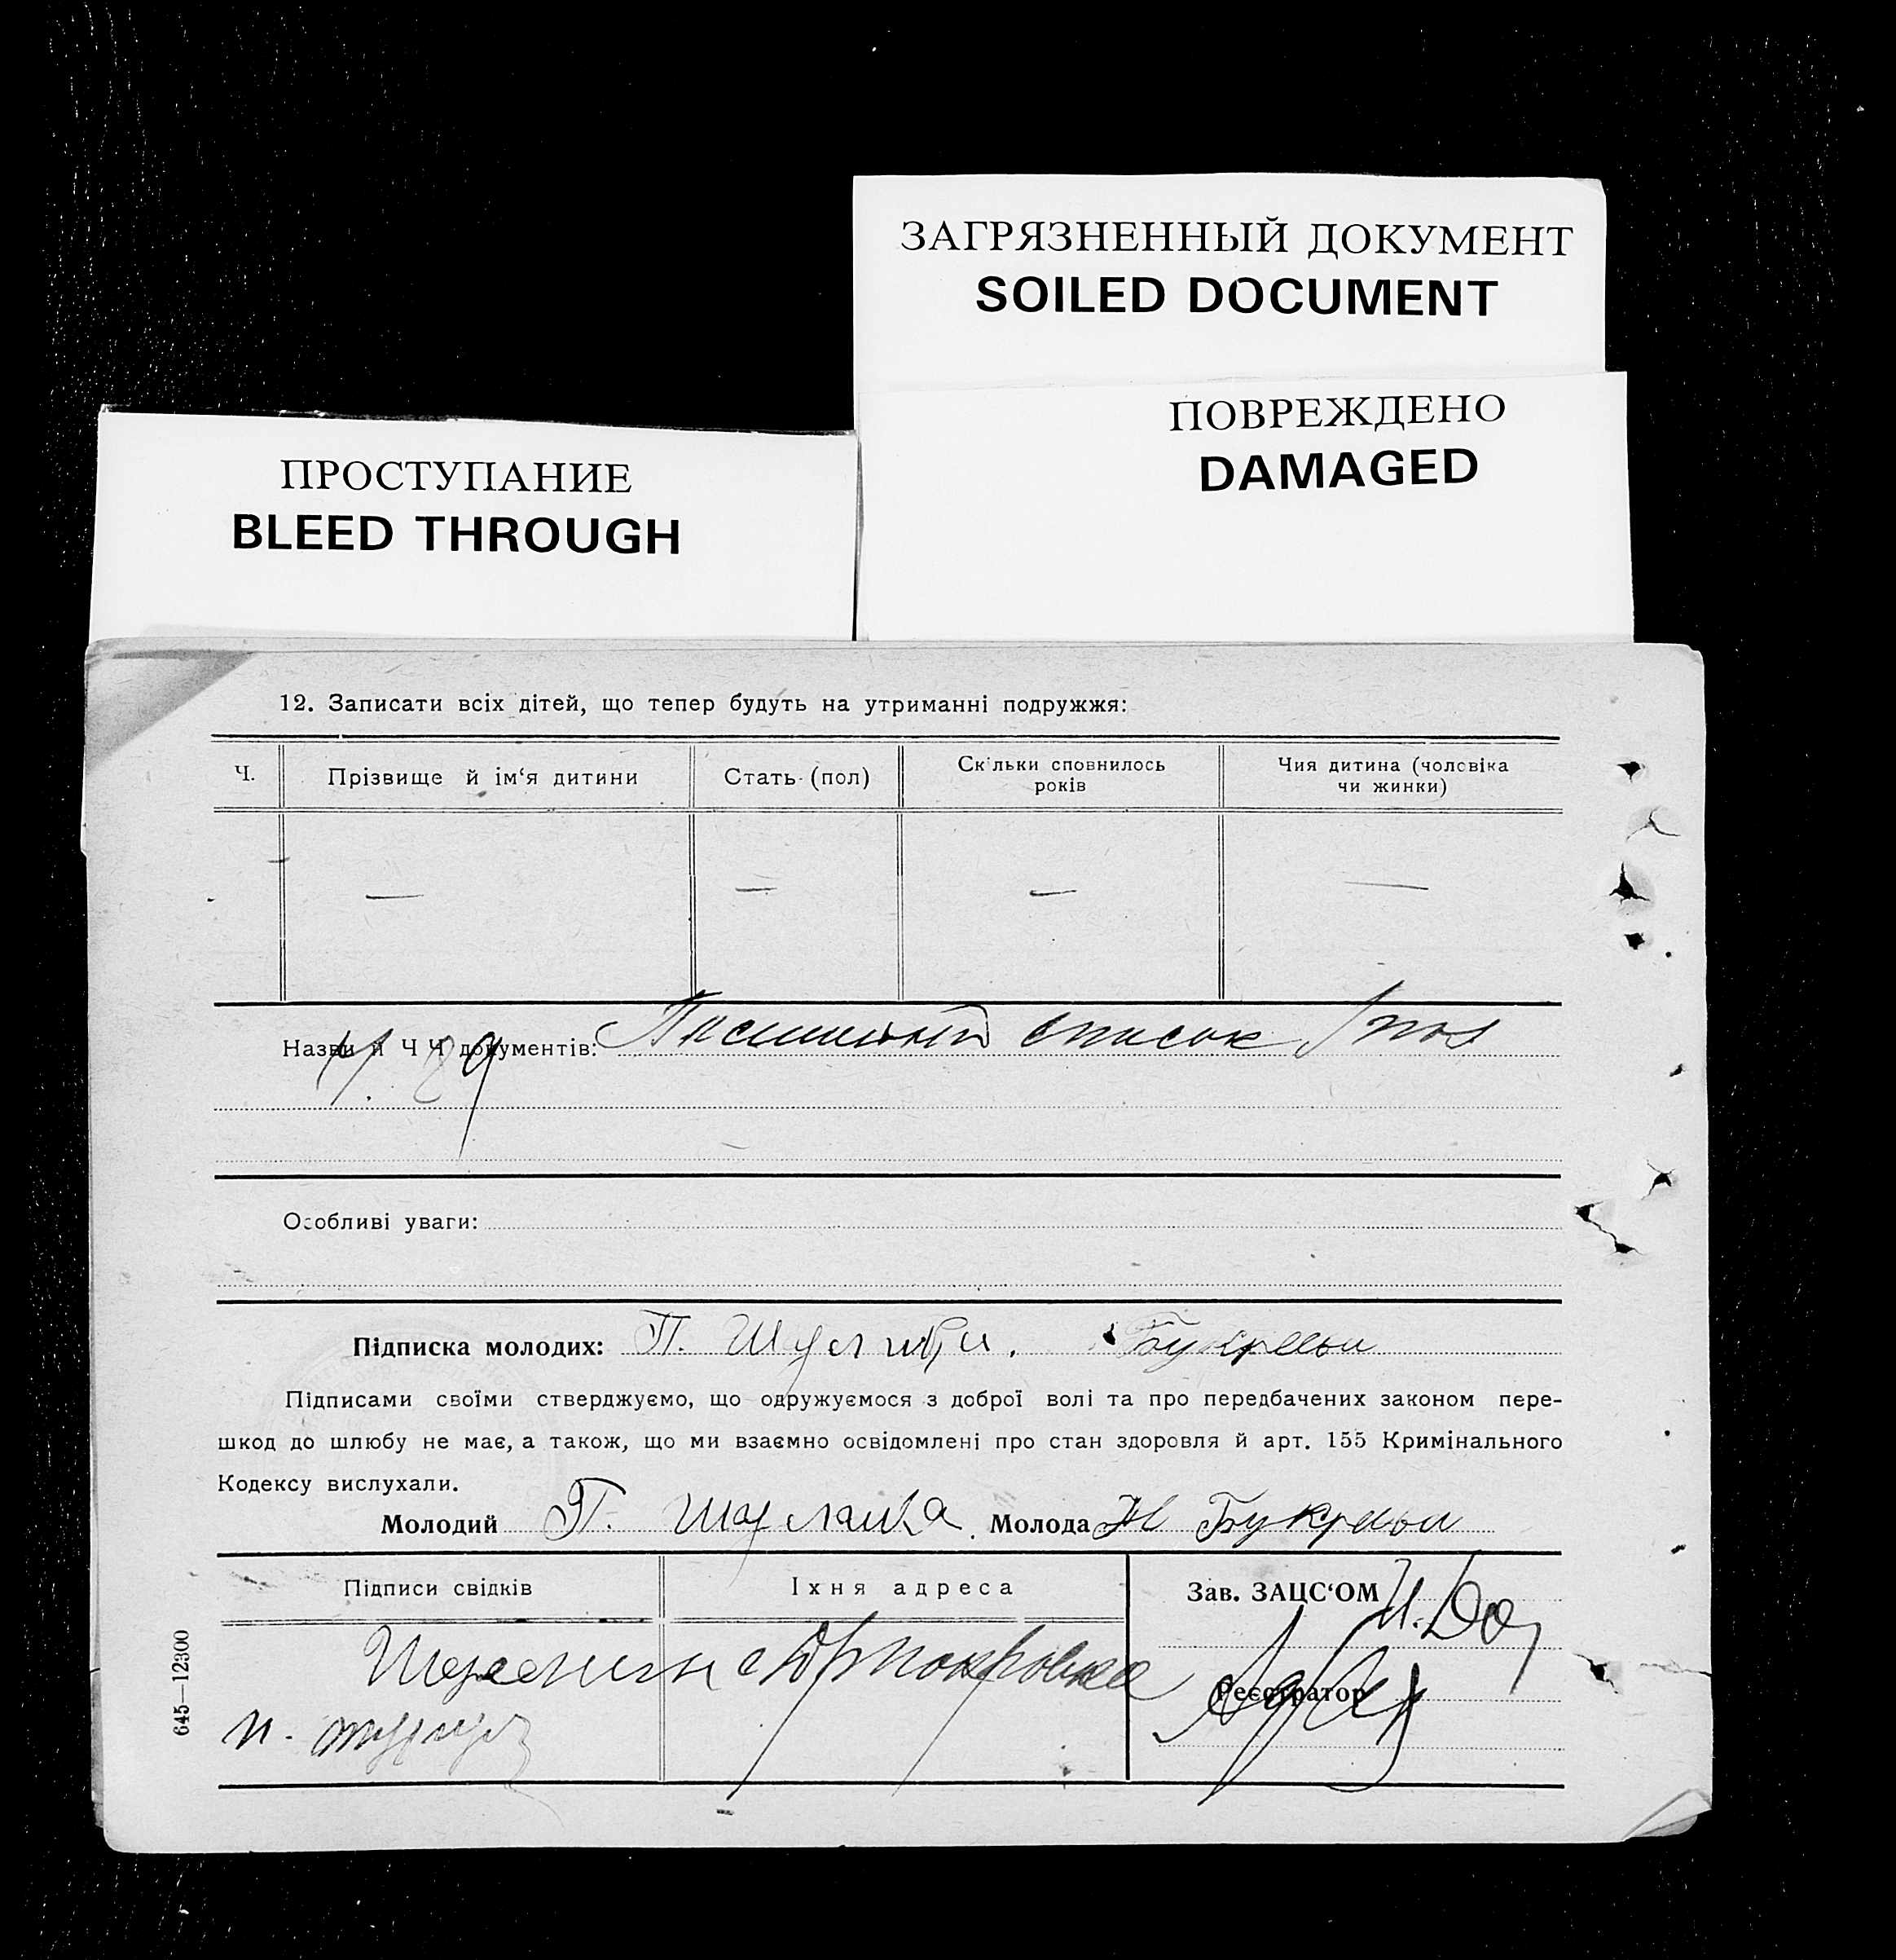 ЗАГРЯЗНЕННЫЙ ДОКУМЕНТ
SOILED DOCUMENT
ПОВРЕЖДЕНО
DAMAGED
ПРОСТУПАНИЕ
BLEED THROUGH
12. Записати всіх дітей, що тепер будуть на утриманні подружжя:
Ч. Прізвище й ім‘я дитини Стать (пол) Скільки сповнилось років Чия дитина (чоловіка чи жинки)
— — — —
Назви й Ч Ч документів: список
Особливі уваги:
Підписка молодих: П.
Підписами своїми стверджуємо, що одружуємося з доброї волі та про передбачених законом пере-
шкод до шлюбу не має, а також, що ми взаємно освідомлені про стан здоровля й арт. 155 Кримінального
Кодексу вислухали.
Молодий П. Молода
Підписи свідків Їхня адреса Зав. ЗАЦС‘ОМ
Реєстратор
645—12300